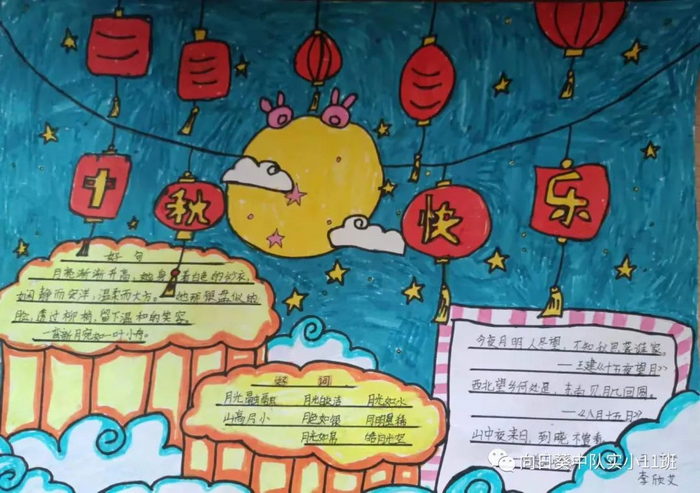 十秋快乐
好句
月亮渐渐升高,她身着白色的纱衣,
娴静而安详,温柔而大方。她那银盘似的
脸,透过柳梢,留下温和的笑容。
一弯新月宛如一叶小舟。
好词
月光 月光皎洁 月光如水
山高月小 月色如银 月明星稀
月光如昼 皓月当空
今夜月明人尽望,不知秋思落谁家。
——王建《十五夜望月》
西北望乡何处是,东南见月几回圆。
——《八月十五日》
山中夜来月,到晓不曾看。
向日葵中队实小11班
李欣艾